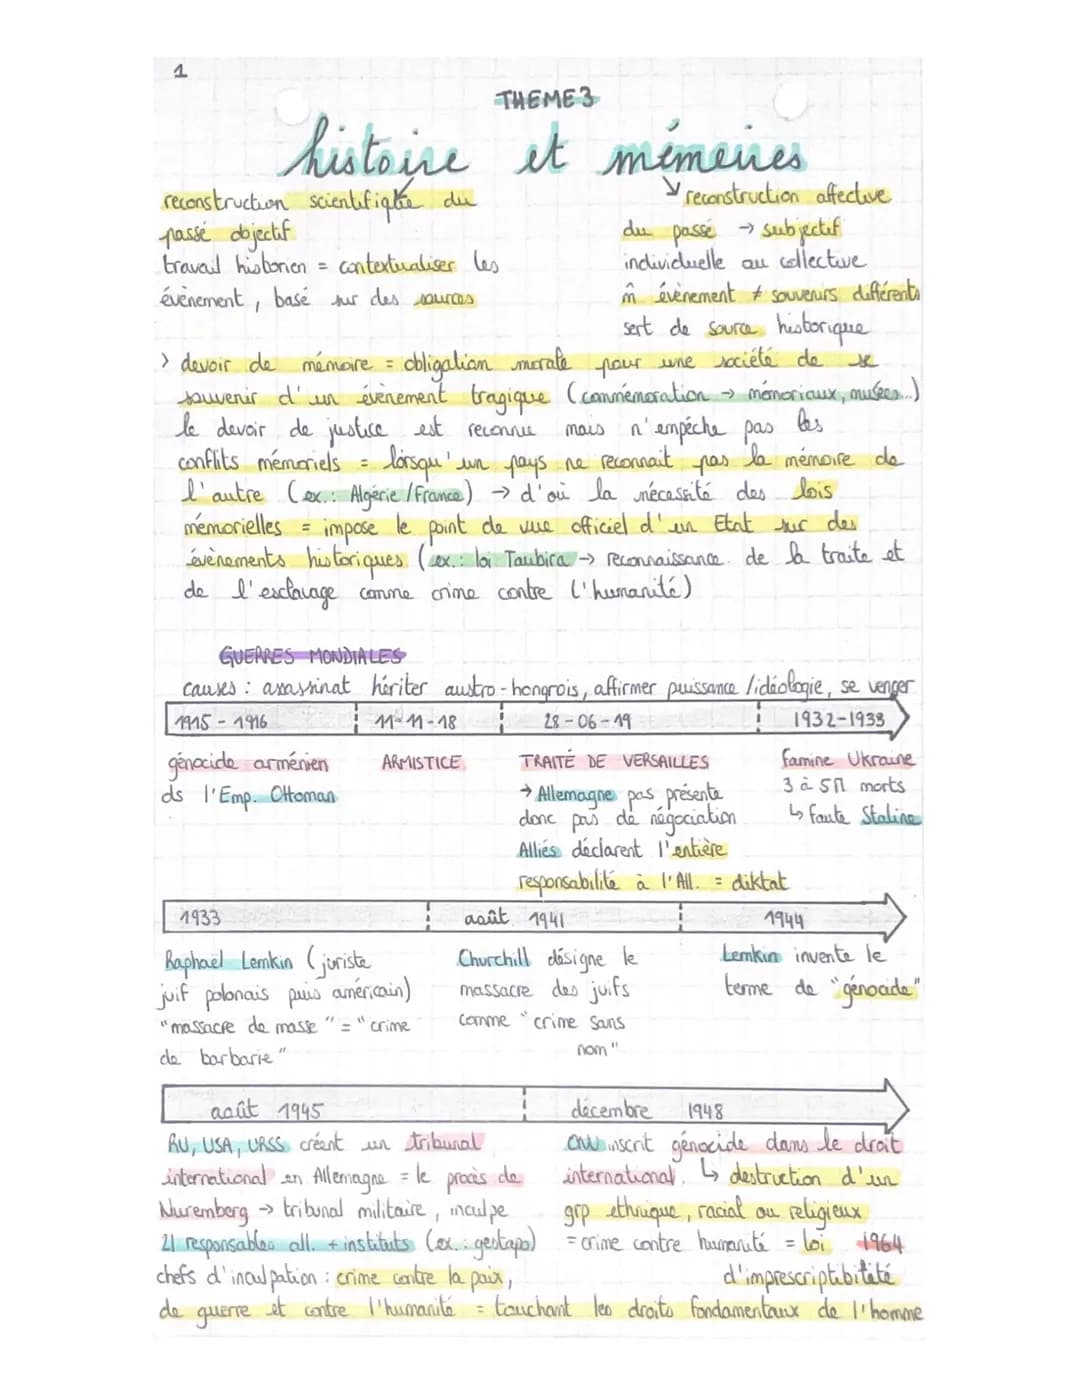 1
THEME 3
histoire et mémoires
reconstruction scientifique du
passé objectif
travail historien = contextualiser les
évènement, basé sur des sources
reconstruction affective
du passé → subjectif
individuelle ou collective
m̂ évènement ≠ souvenirs différents
sert de source historique
> devoir de mémoire = obligation morale pour une société de se
souvenir d'un évènement tragique (commémoration → mémoriaux, musées...)
le devoir de justice est reconnu mais n'empêche pas les
conflits mémoriels = lorsqu'un pays ne reconnait pas la mémoire de
l'autre (ex.: Algérie/France) → d'où la nécessité des lois
mémorielles = impose le point de vue officiel d'un Etat sur des
évènements historiques (ex.: loi Taubira → reconnaissance de la traite et
de l'esclavage comme crime contre l'humanité)
GUERRES MONDIALES
causes : assassinat hériter austro-hongrois, affirmer puissance/idéologie, se venger
1915 - 1916
11-11-18
28-06-19
1932-1933
génocide arménien
ds l'Emp. Ottoman
ARMISTICE
TRAITÉ DE VERSAILLES
→ Allemagne pas présente
donc pas de négociation
Alliés déclarent l'entière
responsabilité à l'All. = diktat
famine Ukraine
3 à 5M morts
↳ faute Staline
1933
août 1941
1944
Raphael Lemkin (juriste
juif polonais puis américain)
"massacre de masse" = "crime
de barbarie"
Churchill désigne le
massacre des juifs
comme "crime sans
nom"
Lemkin invente le
terme de "génocide"
août 1945
décembre 1948
RU, USA, URSS créent un tribunal
international en Allemagne = le procès de
Nuremberg → tribunal militaire, inculpe
21 responsables all. + instituts (ex.: gestapo)
chefs d'inculpation : crime contre la paix,
de guerre et contre l'humanité = touchant les droits fondamentaux de l'homme
ONU inscrit génocide dans le droit
international. ↳ destruction d'un
grp ethnique, racial ou religieux
= crime contre humanité = loi 1964
d'imprescriptibilité